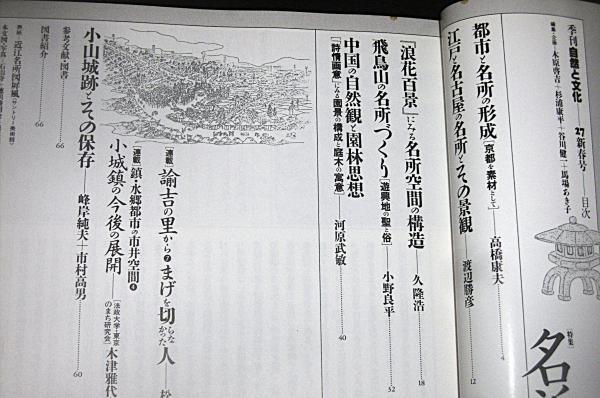 季刊 自然と文化 27 新春号──目次
編集・企画──木原啓吉+杉浦康平+谷川健一+馬場あき子
[特集]
名
都市と名所の形成[京都を素材として]──高橋康夫 4
江戸と名古屋の名所とその景観──渡辺勝彦 12
『浪花百景』にみる名所空間の構造──久隆浩 18
飛鳥山の名所づくり[遊興地の聖と俗]──小野良平 32
中国の自然観と園林思想
[「詩情画意」にみる園景の構成と庭木の寓意]──河原武敏 40
[連載] 諭吉の里から❼ まげを切らなかった人──松
[連載] 鎮・水郷都市の市井空間❹
小城鎮の今後の展開──[法政大学・東京のまち研究会]木津雅代
小山城跡とその保存──峰岸純夫+市村高男 60
参考文献・図書 66
図書紹介 66
表紙──近江名所図屏風[サントリー美術館]